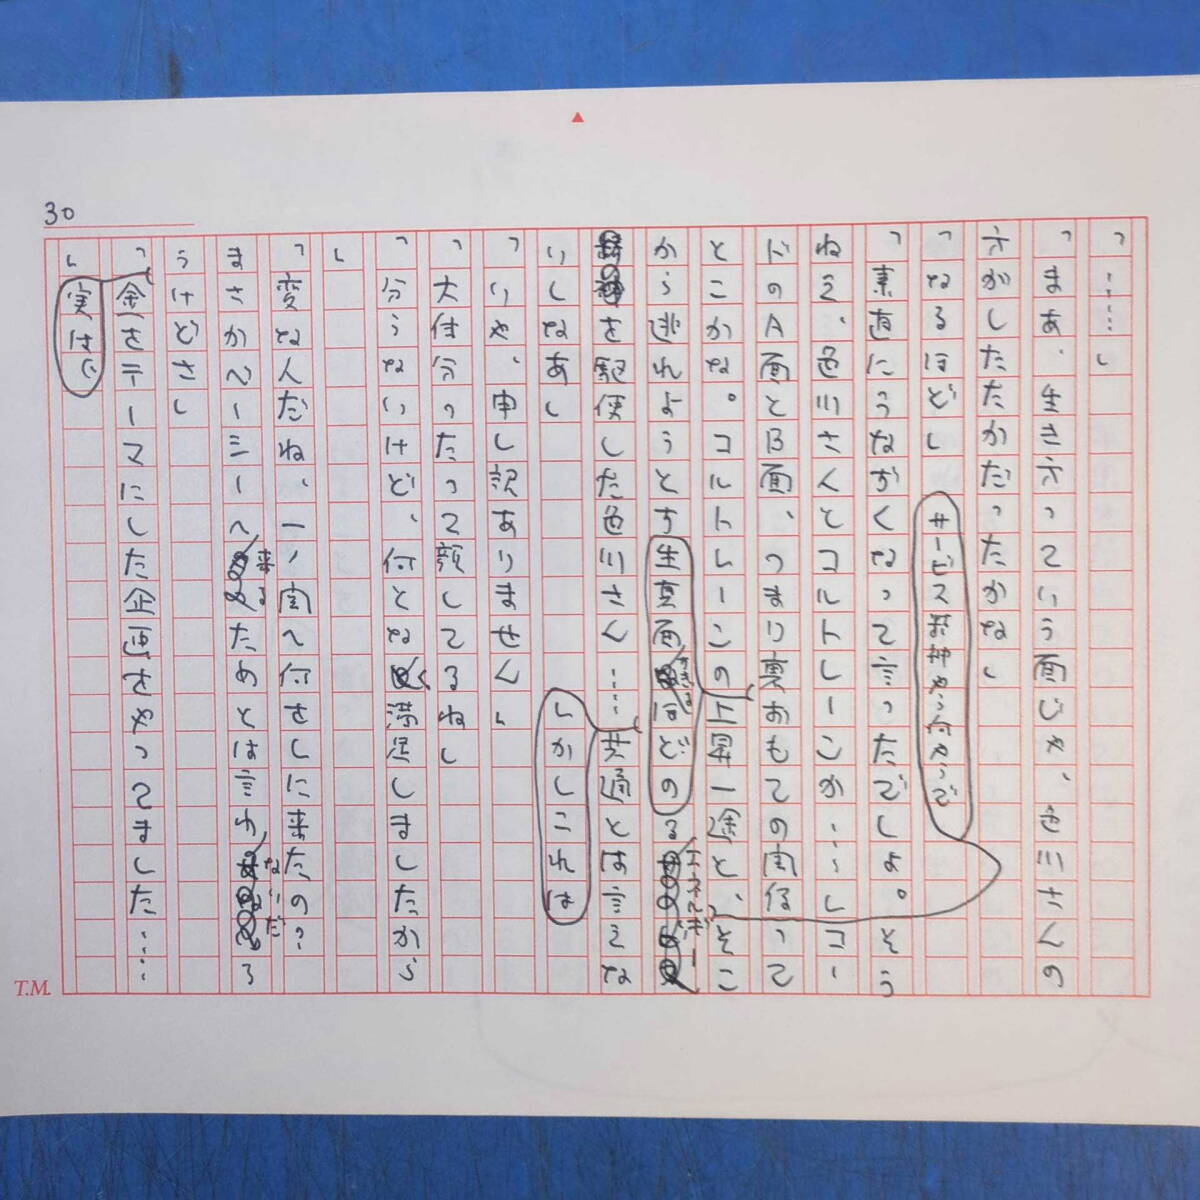 30
「……」
「まあ、生き方っていう面じゃ、色川さんの
方がしたたかだったかな」
「なるほど」
サービス精神やら何やらで
「素直にうなずくなって言ったでしょ。そう
ねえ、色川さんとコルトレーンか……。コー
ドのA面とB面、つまり裏おもての関係って
とこかな。コルトレーンの上昇一途と、そこ
生真面目すぎるほどの
からら逃れようとする
エネルギー
を駆使した色川さん……共通とは言えな
しかしこれは
いしなあ」
「りゃ、申し訳ありません」
「大体分ったって顔してるね」
「分らないけど、何となく満足しましたから
」
「変な人だね、一ノ関へ何をしに来たの？
まさかベーシーへ来るためとは言わないだろ
うけどさ」
「金をテーマにした企画をやってました……
」
実はで
T.M.